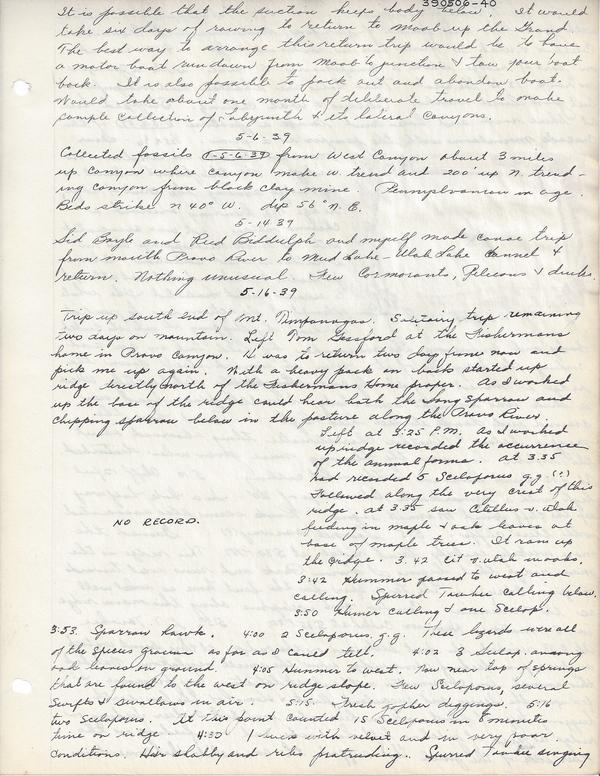 390506-40
It is possible that the suction keeps body below. It would
take six days of rowing to return to Moab up the Grand.
The best way to arrange this return trip would be to have
a motor boat run down from Moab to junction & tow your boat
back. It is also possible to pack out and abandon boat.
Would take about one month of deliberate travel to make
sample collection of Labyrinth & its lateral canyons.
5-6-39
Collected fossils 1-5-6-39 from West Canyon about 3 miles
up canyon where canyon make W. trend and 200' up N. trend-
ing canyon from black clay mine. Pennsylvanian in age.
Beds strike N 40° W. dip 56° N.E.
5-14-39
Sid Boyle and Reed Biddulph and myself made canoe trip
from mouth Provo River to Mud Lake - Utah Lake Channel &
return. Nothing unusual. Few Cormorants, Pelicans & ducks.
5-16-39
Trip up south end of Mt. Timpanogas. Solitairy trip remaining
two days on mountain. Left Tom at the Fishermans
home in Provo Canyon. He was to return two days from now and
pick me up again. With a heavy pack on back started up
ridge directly north of the Fishermans Home proper. As I worked
up the base of the ridge could hear both the Song Sparrow and
chipping sparrow below in the pasture along the Provo River.
Left at 3:25 P.M. As I worked
up ridge recorded the occurrence
of the animal forms. At 3.35
had recorded 5 Sceloporus g.g. (?)
Followed along the very crest of this
ridge. At 3:35 saw Citillus v. utah
feeding in maple & oak leaves at
base of maple tree. It ran up
the ridge. 3.42 Cit v. utah
3:42 Hummer passed to west and
calling. Spurred Towhee calling below.
3:50 Humer calling & one Scelop.
NO RECORD.
3:53. Sparrow hawk. 4:00 2 Sceloporus g.g. These lizards were all
of the species as far as I could tell. 4:02 3 Scelop. among
oak leaves on ground. 4:05 Hummer to west. Now near top of springs
that are found to the west on ridge slope. Few Sceloporus, several
Swifts & swallows in air. 5:15 Fresh gopher diggings. 5:16
two Sceloporus. At this point counted 15 Sceloporus in 8 minutes
time on ridge 4:30 1 buck with velvet and in very poor
conditions. Hair shabby and ribs protruding. Spurred Towhee singing